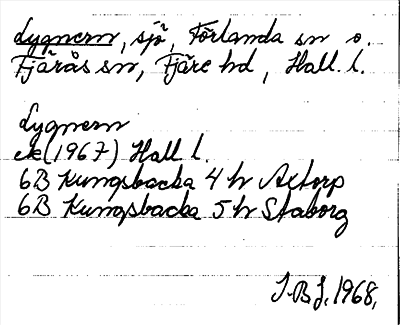 Lygnern, sjö, Förlanda sn o.
Fjärås sn, Fjäre hd, Hall. l.
Lygnern
ek (1967) Hall l.
6B Kungsbacka 4 h Aetorp
6B Kungsbacka 5 h Staborg
1968,